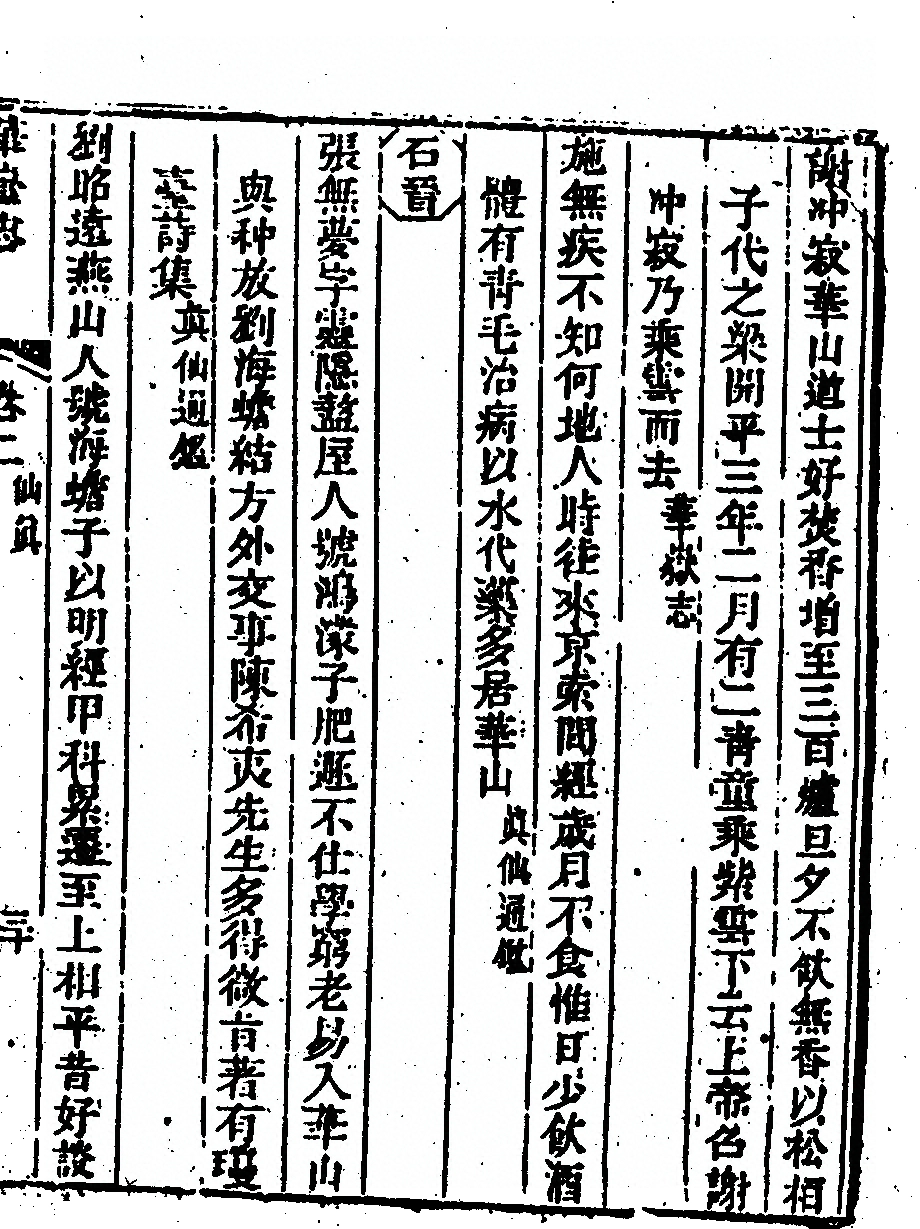 謝冲寂華山道士好焚香增至三百爐旦夕不飲無香以松栢
子代之梁開平三年二月有二青童乘紫雲下云上帝召謝
冲寂乃乘雲而去華嶽志
施無疾不知何地人時往來京索間經歲月不食惟日少飲酒
體有青毛治病以水代藥多居華山真仙通鑑
石晉
張無夢字靈隱盩厔人號鴻濛子肥遯不仕學窮老易入華山
與种放劉海蟾結方外交事陳希夷先生多得微旨著有瓊
臺詩集真仙通鑑
劉昭遠燕山人號海蟾子以明經甲科累遷至上相平昔好談
華嶽志 卷二 仙真 三十